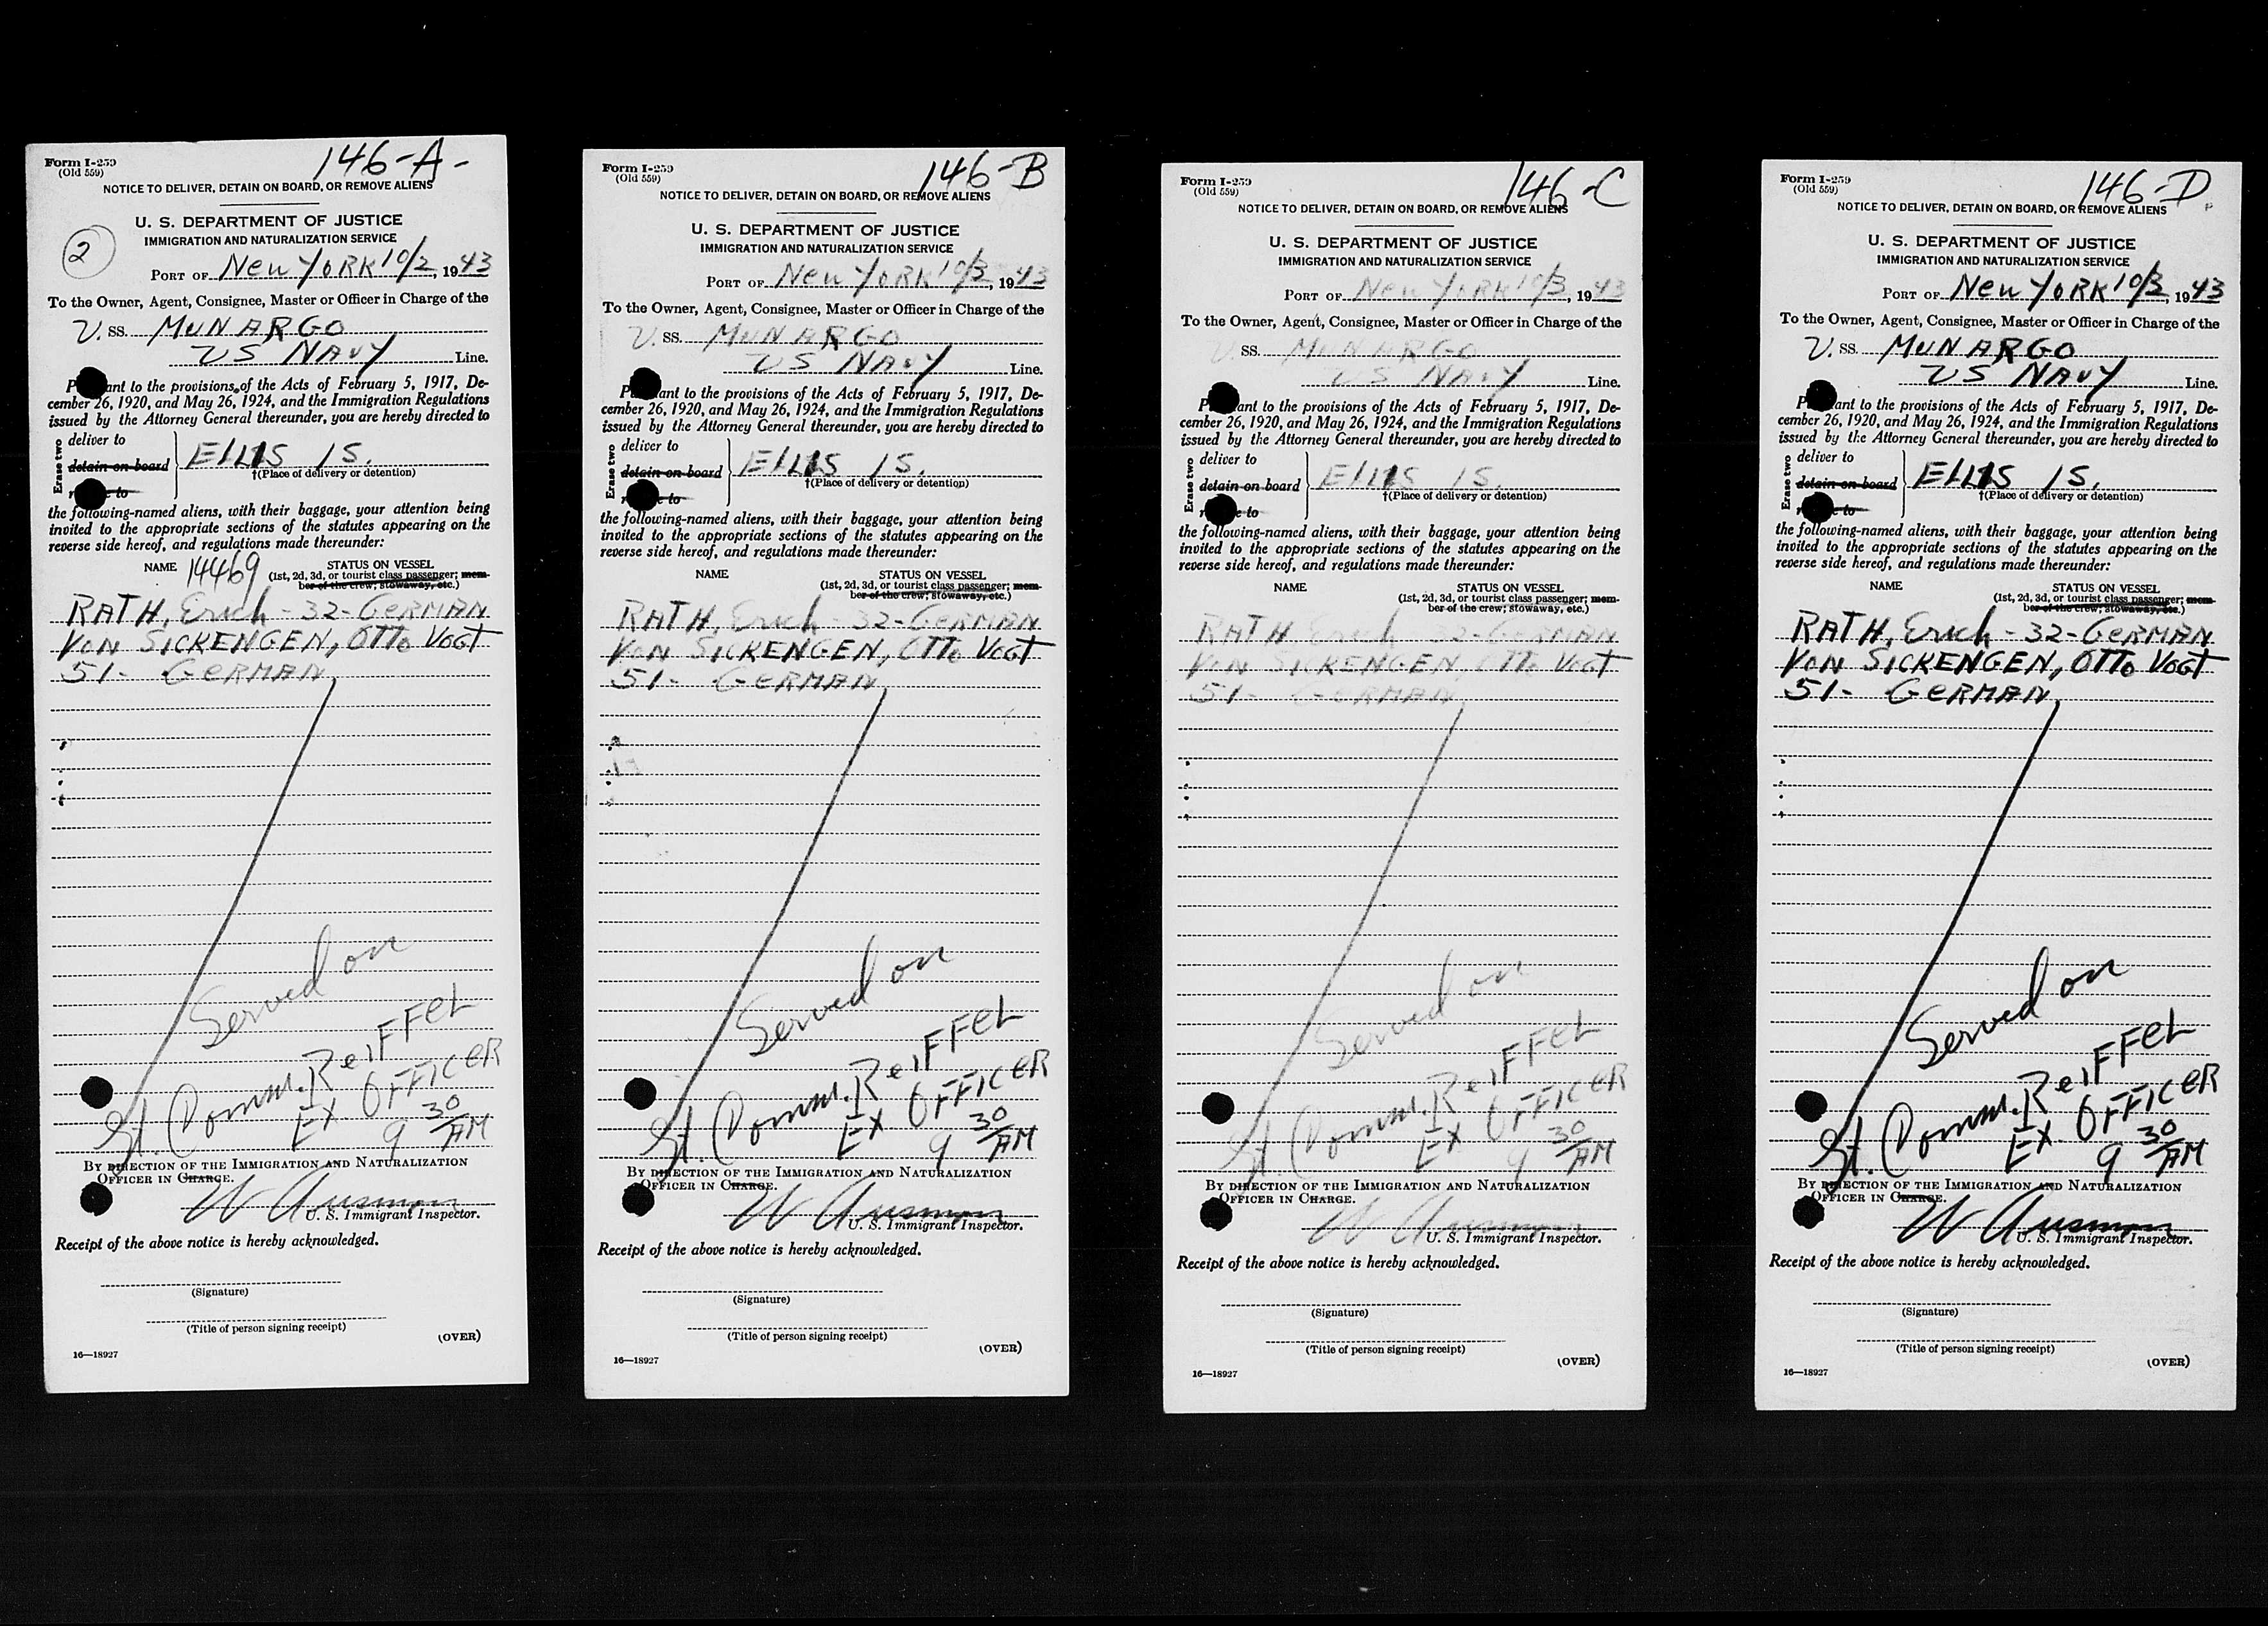 Form I-259
(Old 559)
146-A-
NOTICE TO DELIVER, DETAIN ON BOARD, OR REMOVE ALIENS
U. S. DEPARTMENT OF JUSTICE
IMMIGRATION AND NATURALIZATION SERVICE
2
PORT OF New YORK 10/2, 1943
To the Owner, Agent, Consignee, Master or Officer in Charge of the
U. SS. MUNARGO
US NAVY Line.
P ant to the provisions of the Acts of February 5, 1917, De-
cember 26, 1920, and May 26, 1924, and the Immigration Regulations
issued by the Attorney General thereunder, you are hereby directed to
Erase two
deliver to
detain on board
r e to
ELLIS IS.
†(Place of delivery or detention)
the following-named aliens, with their baggage, your attention being
invited to the appropriate sections of the statutes appearing on the
reverse side hereof, and regulations made thereunder:
NAME 14469 STATUS ON VESSEL
(1st, 2d, 3d, or tourist class passenger; mem-
ber of the crew; stowaway, etc.)
RATH, Erich - 32 - GERMAN
VON SICKENGEN, OTTO VOGT
51- GERMAN
Served on
Lt. Comm. ReIFFeL
EX OFFICER
9 30 AM
BY DIRECTION OF THE IMMIGRATION AND NATURALIZATION
OFFICER IN CHARGE.
W Ausmon
U. S. Immigrant Inspector.
Receipt of the above notice is hereby acknowledged.
(Signature)
(Title of person signing receipt)
(OVER)
16—18927
Form I-259
(Old 559)
146-B
NOTICE TO DELIVER, DETAIN ON BOARD, OR REMOVE ALIENS
U. S. DEPARTMENT OF JUSTICE
IMMIGRATION AND NATURALIZATION SERVICE
PORT OF New YORK 10/3, 1943
To the Owner, Agent, Consignee, Master or Officer in Charge of the
U. SS. MUNARGO
US NAVY Line.
P ant to the provisions of the Acts of February 5, 1917, De-
cember 26, 1920, and May 26, 1924, and the Immigration Regulations
issued by the Attorney General thereunder, you are hereby directed to
Erase two
deliver to
detain on board
r e to
ELLIS IS.
†(Place of delivery or detention)
the following-named aliens, with their baggage, your attention being
invited to the appropriate sections of the statutes appearing on the
reverse side hereof, and regulations made thereunder:
NAME STATUS ON VESSEL
(1st, 2d, 3d, or tourist class passenger; mem-
ber of the crew; stowaway, etc.)
RATH, Erich - 32-GERMAN
VON SICKENGEN, OTTO VOGT
51- GERMAN
Served on
Lt. Comm. ReIFFeL
EX OFFICER
9 30 AM
BY DIRECTION OF THE IMMIGRATION AND NATURALIZATION
OFFICER IN CHARGE.
W Ausmon
U. S. Immigrant Inspector.
Receipt of the above notice is hereby acknowledged.
(Signature)
(Title of person signing receipt)
(OVER)
16—18927
Form I-259
(Old 559)
146-C
NOTICE TO DELIVER, DETAIN ON BOARD, OR REMOVE ALIENS
U. S. DEPARTMENT OF JUSTICE
IMMIGRATION AND NATURALIZATION SERVICE
PORT OF New YORK 10/3, 1943
To the Owner, Agent, Consignee, Master or Officer in Charge of the
U. SS. MUNARGO
US NAVY Line.
P ant to the provisions of the Acts of February 5, 1917, De-
cember 26, 1920, and May 26, 1924, and the Immigration Regulations
issued by the Attorney General thereunder, you are hereby directed to
Erase two
deliver to
detain on board
r e to
ELLIS IS.
†(Place of delivery or detention)
the following-named aliens, with their baggage, your attention being
invited to the appropriate sections of the statutes appearing on the
reverse side hereof, and regulations made thereunder:
NAME STATUS ON VESSEL
(1st, 2d, 3d, or tourist class passenger; mem-
ber of the crew; stowaway, etc.)
RATH, Erich - 32-GERMAN
VON SICKENGEN, OTTO VOGT
51- GERMAN
Served on
Lt. Comm. ReIFFeL
EX OFFICER
9 30 AM
BY DIRECTION OF THE IMMIGRATION AND NATURALIZATION
OFFICER IN CHARGE.
W Ausmon
U. S. Immigrant Inspector.
Receipt of the above notice is hereby acknowledged.
(Signature)
(Title of person signing receipt)
(OVER)
16—18927
Form I-259
(Old 559)
146-D
NOTICE TO DELIVER, DETAIN ON BOARD, OR REMOVE ALIENS
U. S. DEPARTMENT OF JUSTICE
IMMIGRATION AND NATURALIZATION SERVICE
PORT OF New YORK 10/3, 1943
To the Owner, Agent, Consignee, Master or Officer in Charge of the
U. SS. MUNARGO
US NAVY Line.
P ant to the provisions of the Acts of February 5, 1917, De-
cember 26, 1920, and May 26, 1924, and the Immigration Regulations
issued by the Attorney General thereunder, you are hereby directed to
Erase two
deliver to
detain on board
r e to
ELLIS IS.
†(Place of delivery or detention)
the following-named aliens, with their baggage, your attention being
invited to the appropriate sections of the statutes appearing on the
reverse side hereof, and regulations made thereunder:
NAME STATUS ON VESSEL
(1st, 2d, 3d, or tourist class passenger; mem-
ber of the crew; stowaway, etc.)
RATH, Erich - 32-GERMAN
VON SICKENGEN, OTTO VOGT
51- GERMAN
Served on
Lt. Comm. ReIFFeL
EX. OFFICER
9 30 AM
BY DIRECTION OF THE IMMIGRATION AND NATURALIZATION
OFFICER IN CHARGE.
W Ausmon
U. S. Immigrant Inspector.
Receipt of the above notice is hereby acknowledged.
(Signature)
(Title of person signing receipt)
(OVER)
16—18927